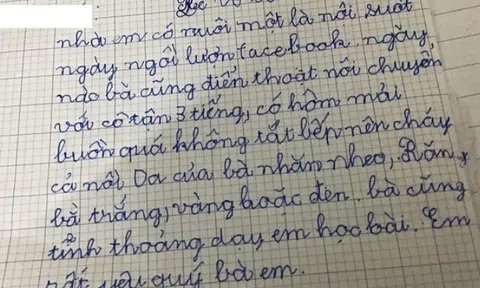 nhà em có nuôi một là nội suốt
ngày ngồi lướn facebook. ngày
nào bà cũng điện thoại nói chuyện
với cô tận 3 tiếng, có hôm mải
buôn quá không tắt bếp nên cháy
cả nồi. Da của bà nhăn nheo, Răng
bà trắng, vàng hoặc đen. bà cũng
tỉnh thoảng day em học bài. Em
yêu quý bà em.